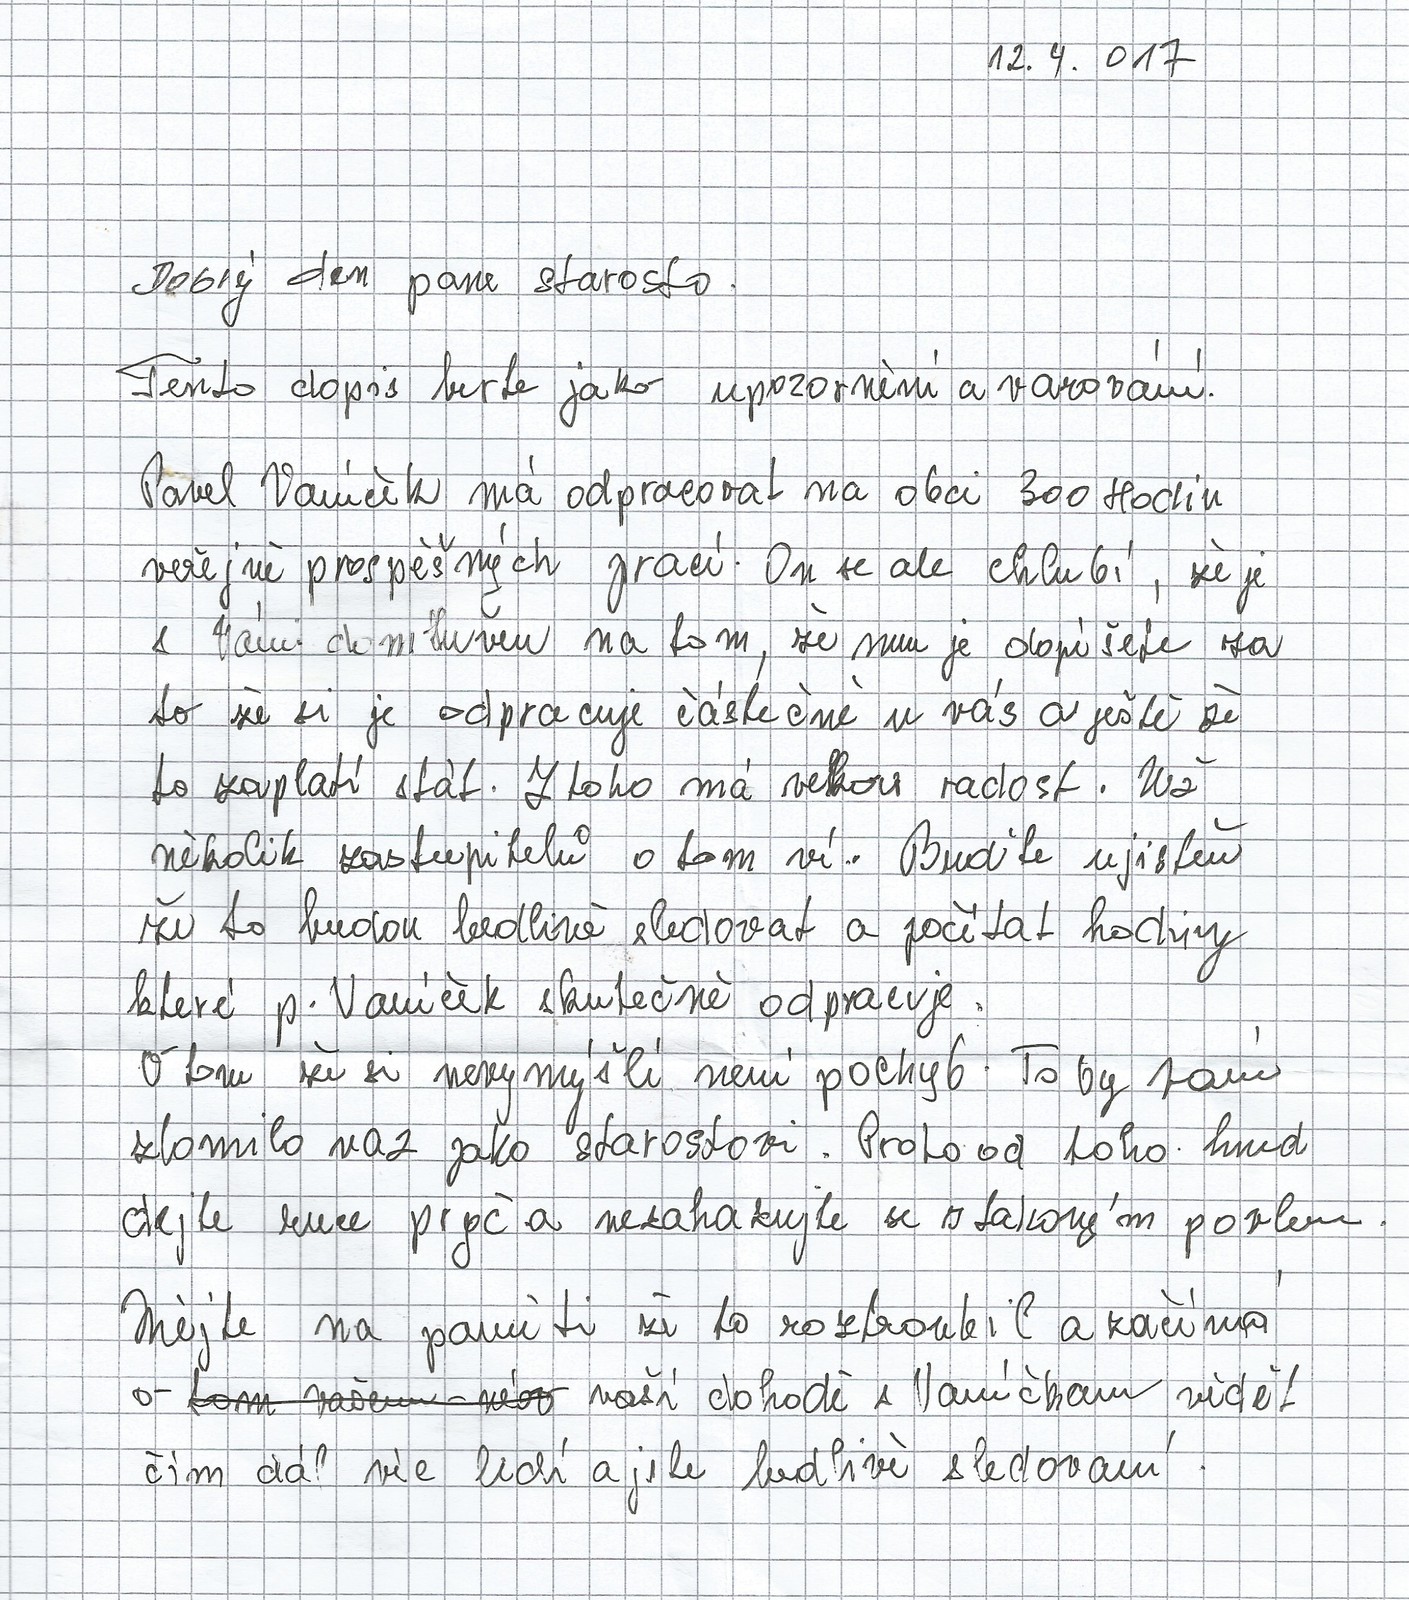 12. 4. 017
Dobrý den pane starosto.
Tento dopis berte jako upozornění a varování.
Pavel Vaníček má odpracovat na obci 300 Hodin
veřejně prospěšných prací. On se ale chlubí, že je
s Vámi domluven na tom, že mu je dopíšete za
to že si je odpracuje částečně u vás a ještě že
to zaplatí stát. Z toho má velkou radost. Už
několik zastupitelů o tom ví.. Buďte ujištěn
že to budou bedlivě sledovat a počítat hodiny
které p. Vaníček skutečně odpracuje.
O tom že si nevymýšlí není pochyb. To by vám
zlomilo vaz jako starostovi. Proto od toho. hned
dejte ruce pryč a nezahazujte se s takovým povlem.
Mějte na paměti že to roztroubil a začíná
o tom vašem vaší dohodě s Vaníčkem vědět
čím dál víc lidí a jste bedlivě sledovaní.